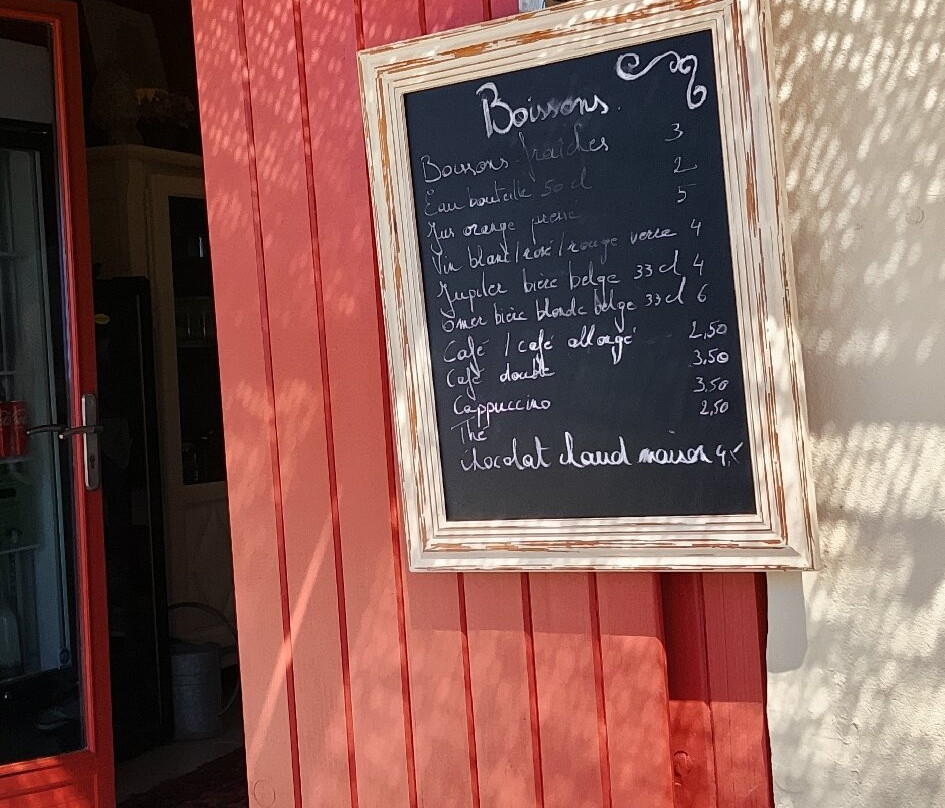 Boissons.
Boissons fraîches 3
Eau bouteille 50 cl 2
Jus orange pressé 5
Vin blanc/rosé/rouge verre 4
Jupiler bière belge 33 cl 4
Omer bière blonde belge 33 cl 6
Café / café allongé 2,50
Café double 3,50
Cappuccino 3,50
Thé 2,50
chocolat chaud maison 4,-